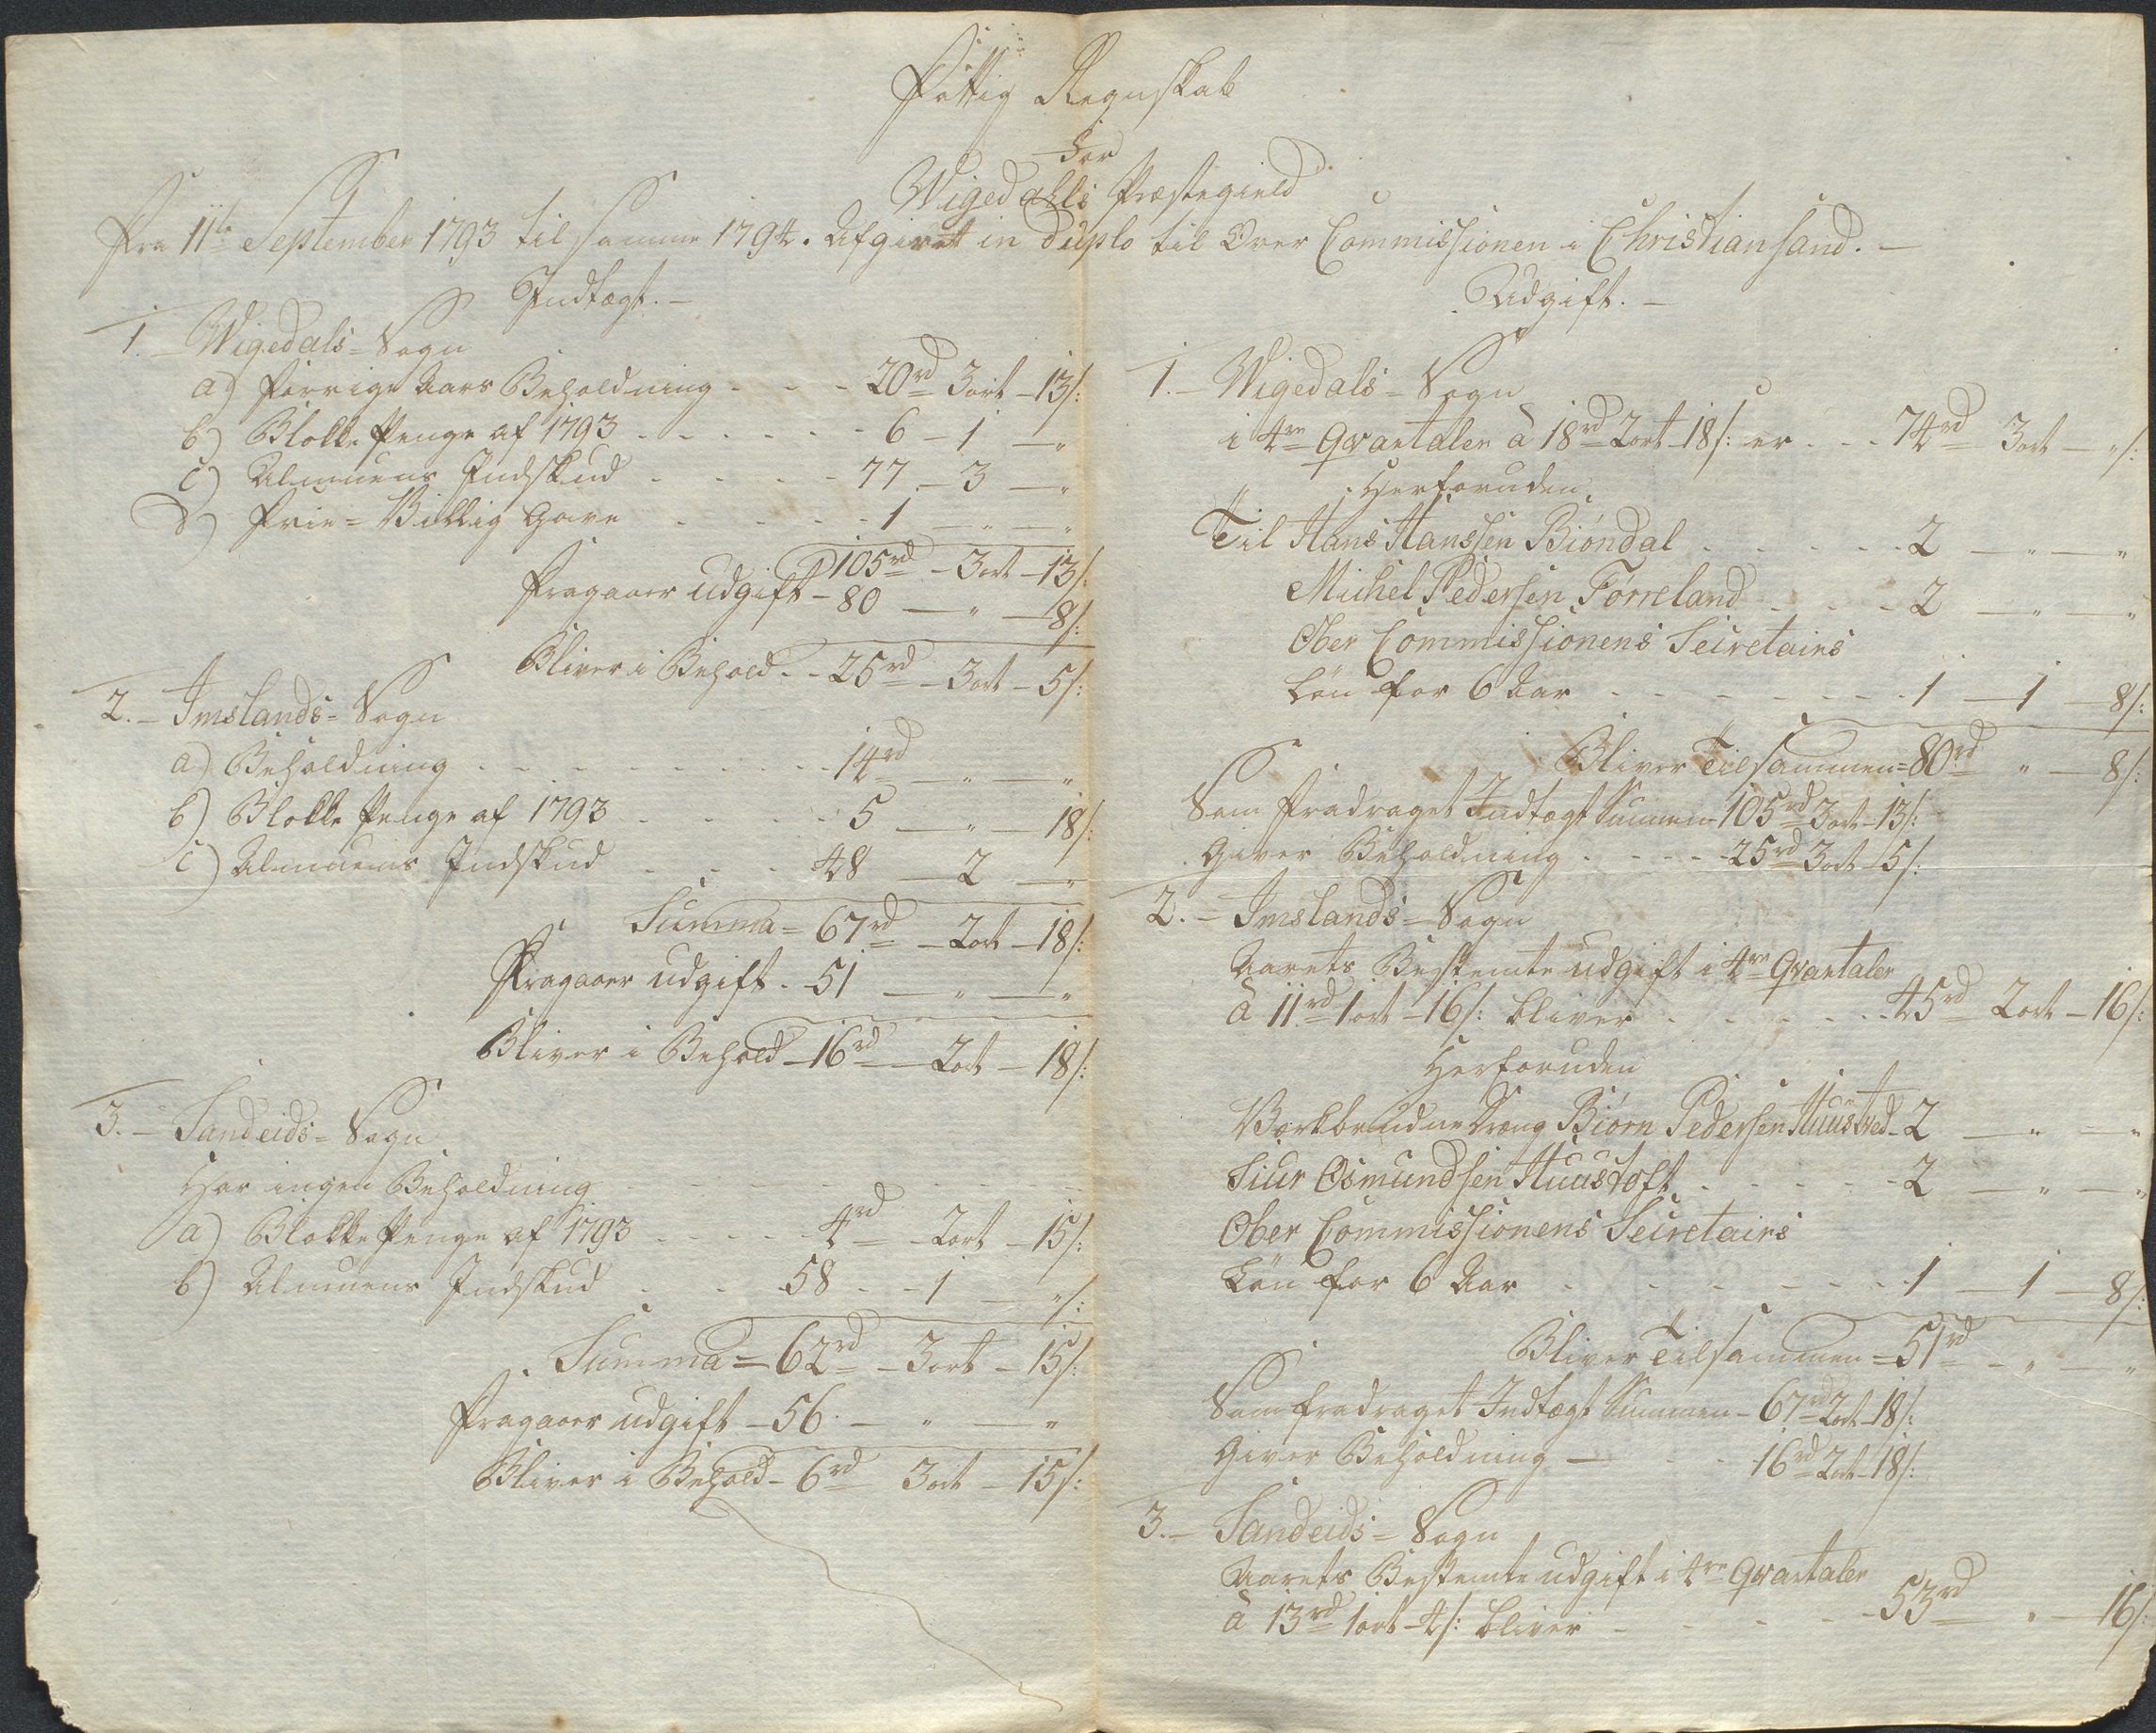 Fattig Regnskab
for
Wigedahls Præstegield
Fra 11te September 1793 til samme 1794. Afgivet in duplo til Over Commissionen i Christiansand. —
Indtægt. —
1. — Wigedals = Sogn
a) forrige Aars Beholdning - - - 20rd 3ort - 13/:
b) Blokke Penge af 1793 - - - - - - 6 - 1 — "
c) Almuens Indskud - - - - - 77 - 3 — "
d) Frie = Villig Gave - - - - - 1 — " — "
105rd - 3ort - 13/:
fragaaer udgift - 80 — " — 8/:
Bliver i Behold - - 25rd - 3ort - 5/:
2. — Imslands = Sogn
a) Beholdning - - - - - - - - - 14rd — " — "
b) Blokke Penge af 1793 - - - - - 5 — " — 18/:
c) Almuens Indskud - - - 48 — 2 — "
Summa = 67rd - 2ort - 18/:
Fragaaer udgift - 51 — " — "
Bliver i Behold - 16rd - 2ort - 18/:
3. — Sandeids = Sogn
Har ingen Beholdning - - - - - -
a) Blokke Penge af 1793 - - - - - 4rd - 2ort - 15/:
b) Almuens Indskud - - 58 - - 1 — "/:
Summa = 62rd - 3ort - 15/:
fragaaer udgift - 56 - — " — "
Bliver i Behold - 6rd 3ort - 15/:
Udgift. —
1. — Wigedals = Sogn
i 4re Qvartaler à 18rd 2ort 18/: er - - - 74rd 3ort — "/:
Herforuden
Til Hans Hanssen Biöndal - - - - - 2 — " — "
Michel Pedersen Förreland - - - 2 — " — "
Ober Commissionens Secretairs
Lön for 6 Aar - - - - - - - 1 — 1 — 8/:
Bliver Tilsammen = 80rd " — 8/:
Som fradraget Indtægt Summen 105rd 3ort - 13/:
Giver Beholdning - - - - 25rd 3ort 5/:
2. — Imslands = Sogn
Aarets Bestemte udgift i 4re Qvartaler
à 11rd 1ort - 16/: bliver - - - - - 45rd 2ort - 16/:
Herforuden
Dreng Biörn Pedersen 2 — " — "
Siur Osmundsen Huustoft - - - - - 2 — " — "
Ober Commissionens Secretairs
Lön for 6 Aar - - - - - - - 1 — 1 — 8/:
Bliver Tilsammen = 51rd - " — "
Som fradraget Indtægt Summen - 67rd 2ort - 18/:
Giver Beholdning — - - 16rd 2ort - 18/:
3. — Sandeids = Sogn
Aarets Bestemte udgift i 4re Qvartaler
à 13rd 1ort - 4/: bliver - - - - - 53rd " — 16/: